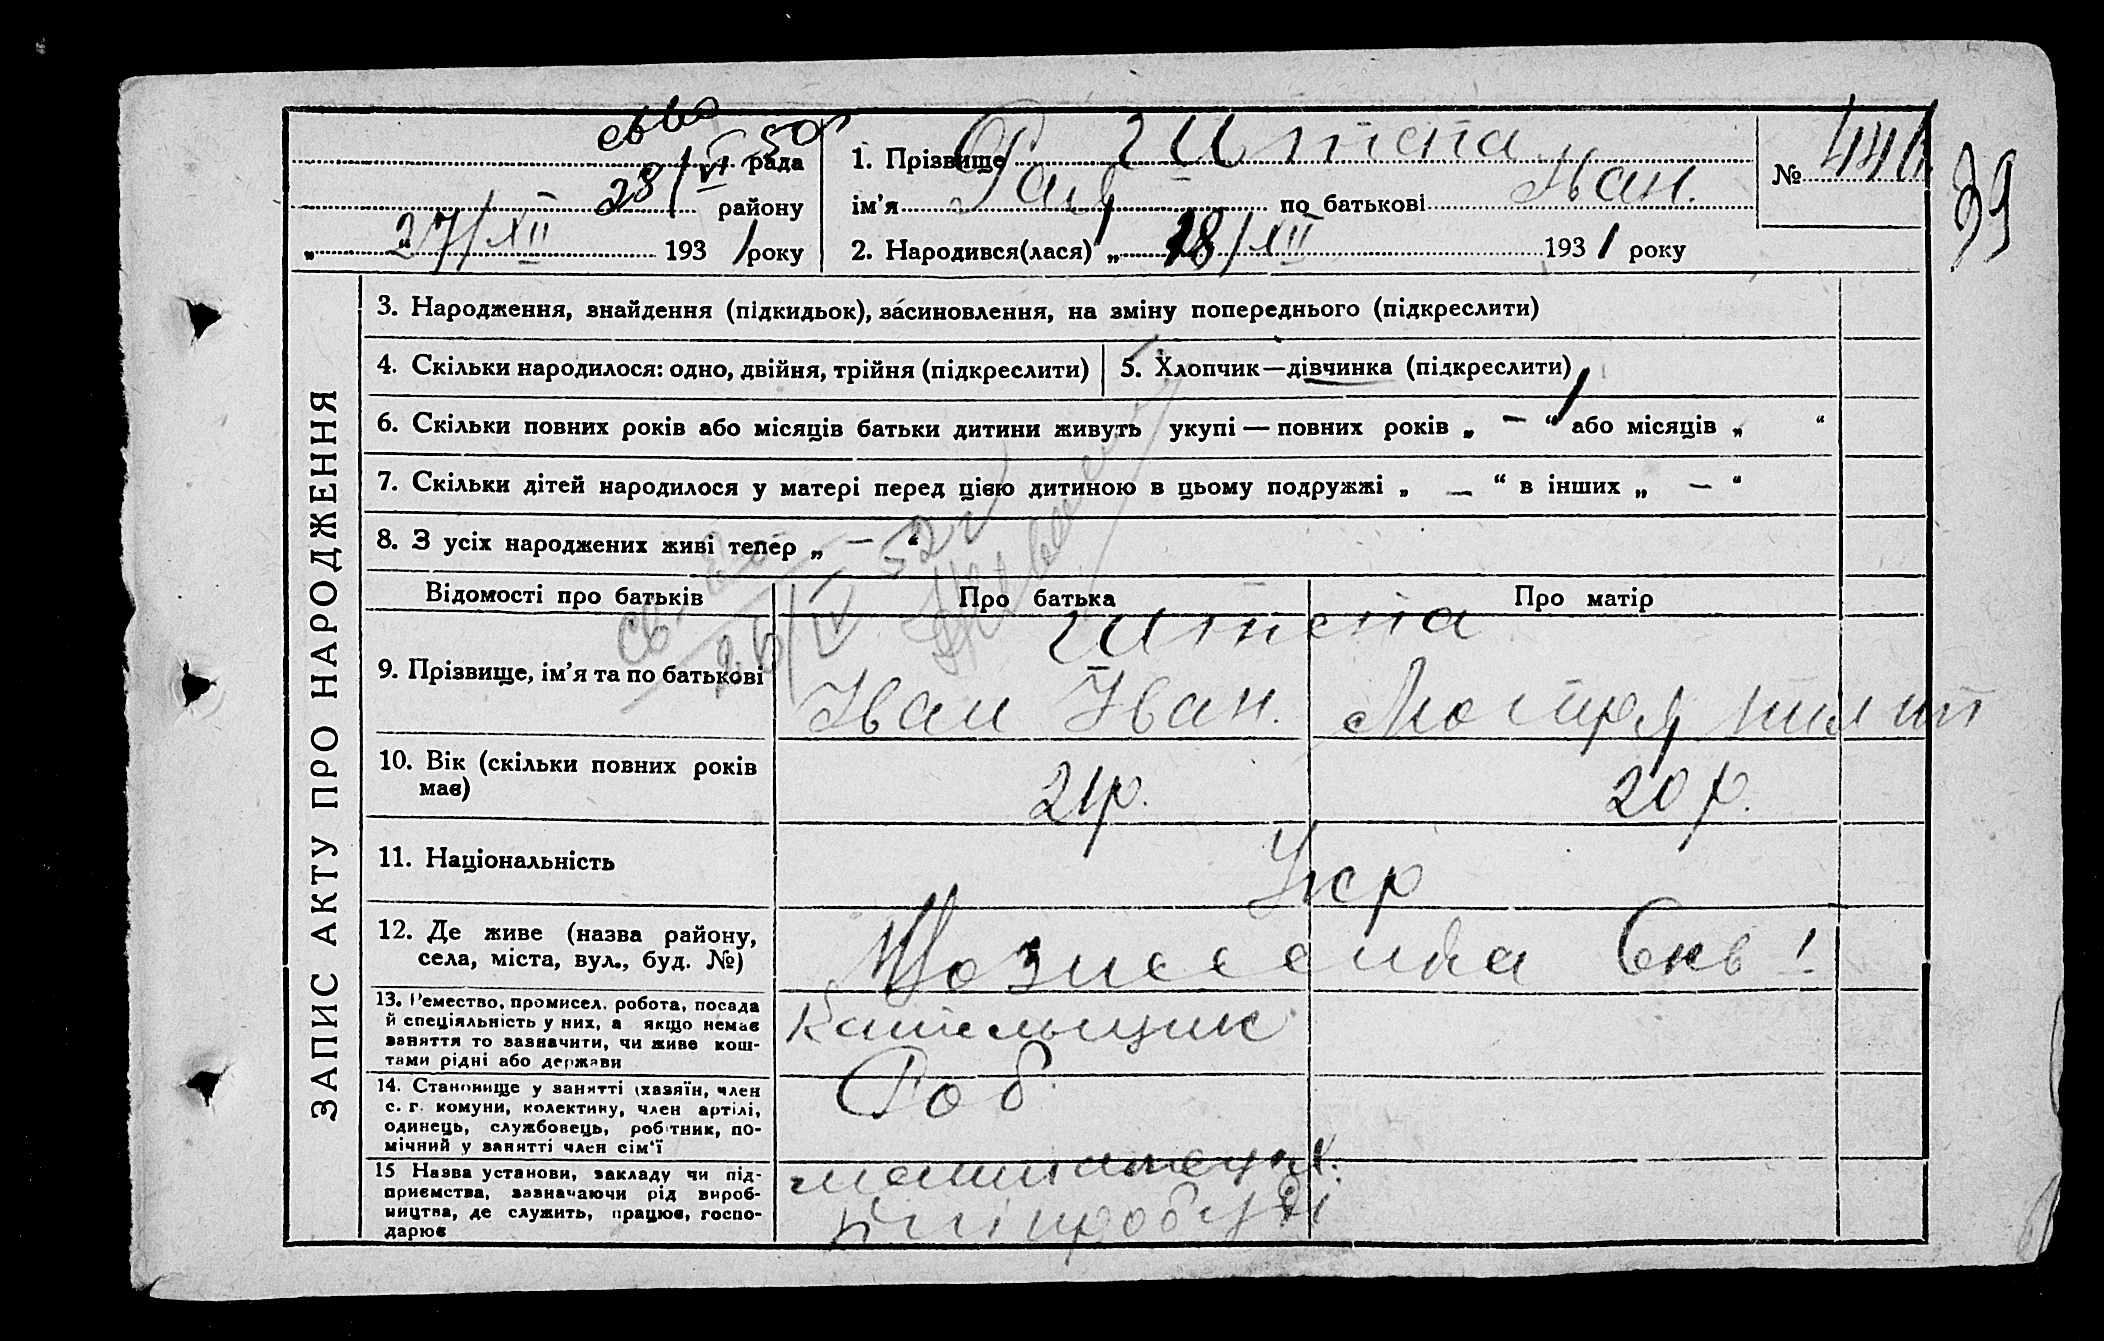 св-во
28/VI 50г
рада
району
„27“/XII 1931 року
1. Прізвище Штепа
ім’я Рая по батькові Іван.
2. Народився(лася) „18/XII 1931 року
№ 446
39
ЗАПИС АКТУ ПРО НАРОДЖЕННЯ
3. Народження, знайдення (підкидьок), засиновлення, на зміну попереднього (підкреслити)
4. Скільки народилося: одно, двійня, трійня (підкреслити)
5. Хлопчик—дівчинка (підкреслити)
6. Скільки повних років або місяців батьки дитини живуть укупі — повних років „ — “ або місяців „ “
7. Скільки дітей народилося у матері перед цією дитиною в цьому подружжі „ — “ в інших „ — “
8. З усіх народжених живі тепер „ — “
св. 26/IV 52г
Відомості про батьків
Про батька
Про матір
9. Прізвище, ім’я та по батькові
Штепа
Іван Іван.
10. Вік (скільки повних років має)
21р.
20 р.
11. Національність
Укр
12. Де живе (назва району, села, міста, вул., буд. №)
Вознесенка
13. Ремество, промисел, робота, посада
й спеціяльність у них, а якщо немає
заняття то зазначити, чи живе кош-
тами рідні або держави
14. Становище у занятті (хазяїн, член
с. г. комуни, колективу, член артілі,
одинець, службовець, робітник, по-
мічний у занятті член сім’ї
Роб
15 Назва установи, закладу чи під-
приємства, зазначаючи рід вироб-
ництва, де служить, працює, госпо-
дарює
Дніпробуді